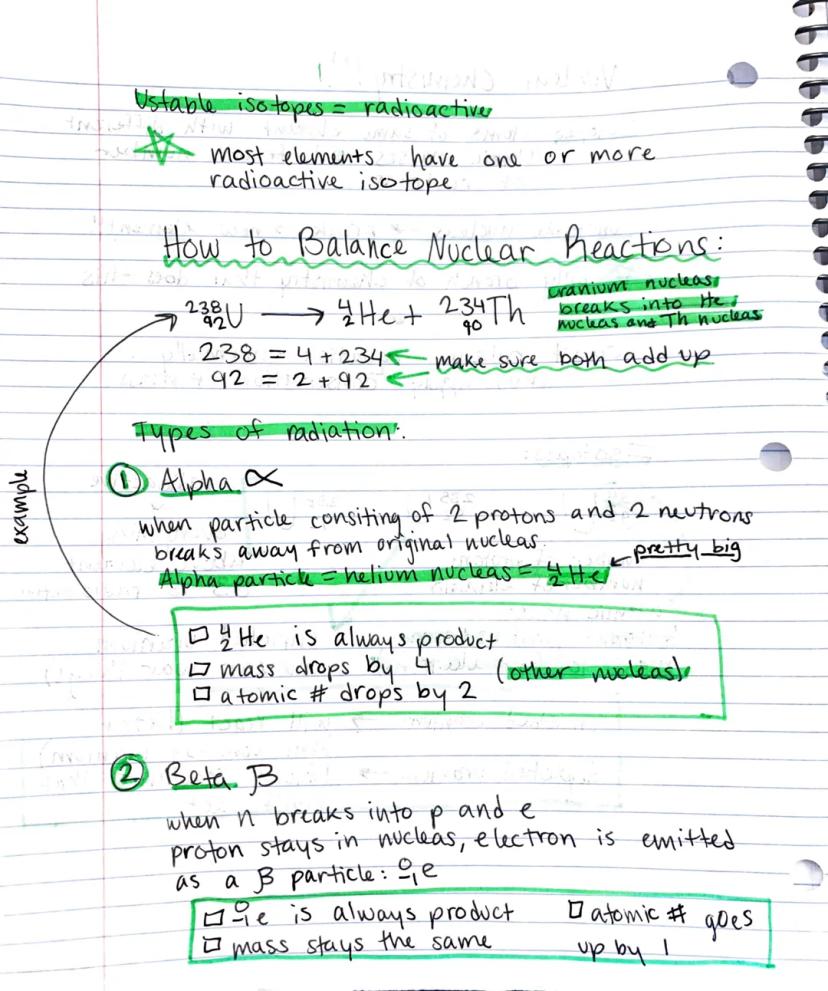 Ustable isotopes = radioactive
most elements have one or more
radioactive isotope
How to Balance Nuclear Reactions:
²³⁸₉₂U → ⁴₂He + ²³⁴₉₀Th
uranium nucleas
breaks into He
nucleas and Th nucleas
238 = 4 + 234 ← make sure both add up
92 = 2 + 92 ←
Types of radiation:
example
① Alpha ∝
when particle consiting of 2 protons and 2 neutrons
breaks away from original nucleas.
pretty big
Alpha particle = helium nucleas = ⁴₂He
□ ⁴₂He is always product
□ mass drops by 4 (other nucleas)
□ atomic # drops by 2
② Beta β
when n breaks into p and e
proton stays in nucleas, electron is emitted
as a β particle: ⁰₋₁e
□ ⁰₋₁e is always product
□ mass stays the same
□ atomic # goes
up by 1